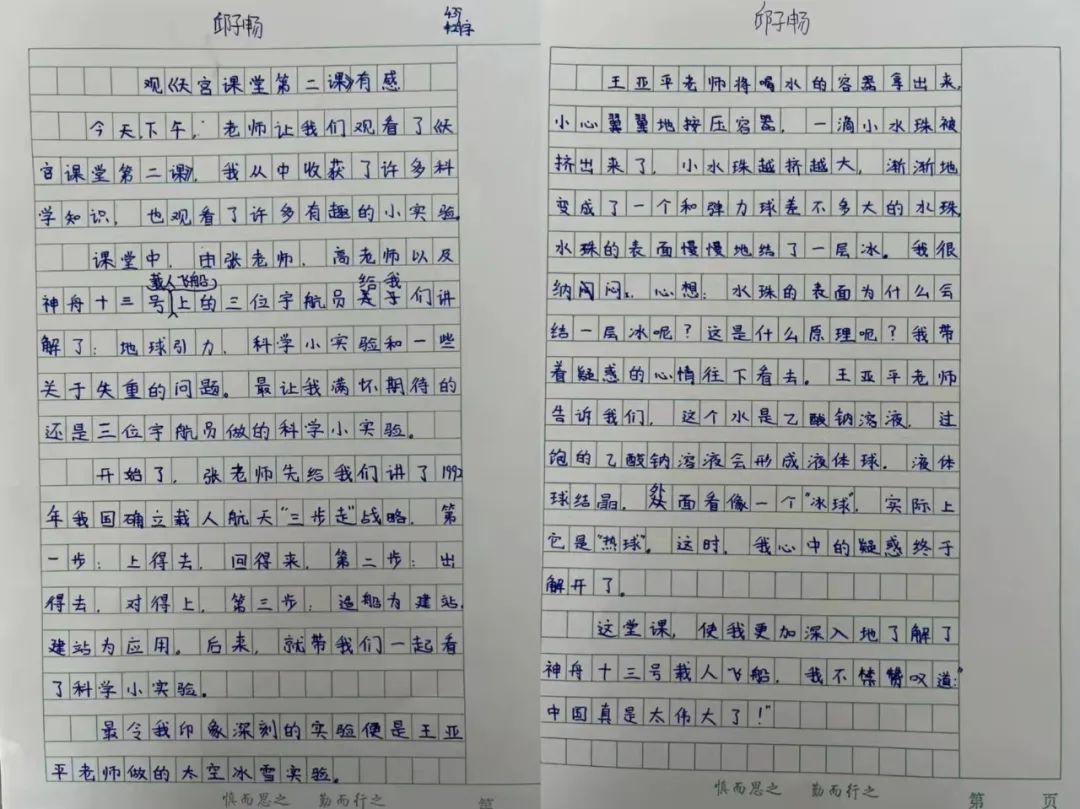 邱子畅
观《天宫课堂第二课》有感
今天下午，老师让我们观看了《天
宫课堂第二课》，我从中收获了许多科
学知识，也观看了许多有趣的小实验。
课堂中，由张老师、高老师以及
载人飞船 给我
神舟十三号上的三位宇航员们讲
解了：地球引力、科学小实验和一些
关于失重的问题。最让我满怀期待的
还是三位宇航员做的科学小实验。
开始了，张老师先给我们讲了1992
年我国确立载人航天“三步走”战略，第
一步：上得去，回得来，第二步：出
得去，对得上，第三步：造船为建站，
建站为应用。后来，就带我们一起看
了科学小实验。
最令我印象深刻的实验便是王亚
平老师做的太空冰雪实验。
慎而思之 勤而行之
第
邱子畅
王亚平老师将喝水的容器拿出来，
小心翼翼地按压容器，一滴小水珠被
挤出来了，小水珠越挤越大，渐渐地
变成了一个和弹力球差不多大的水珠，
水珠的表面慢慢地结了一层冰。我很
纳闷，心想：水珠的表面为什么会
结一层冰呢？这是什么原理呢？我带
着疑惑的心情往下看去。王亚平老师
告诉我们，这个水是乙酸钠溶液，过
饱的乙酸钠溶液会形成液体球，液体
球结晶，外面看像一个“冰球”，实际上
它是“热球”。这时，我心中的疑惑终于
解开了。
这堂课，使我更加深入地了解了
神舟十三号载人飞船，我不禁赞叹道：“
中国真是太伟大了！”
慎而思之 勤而行之
第 页